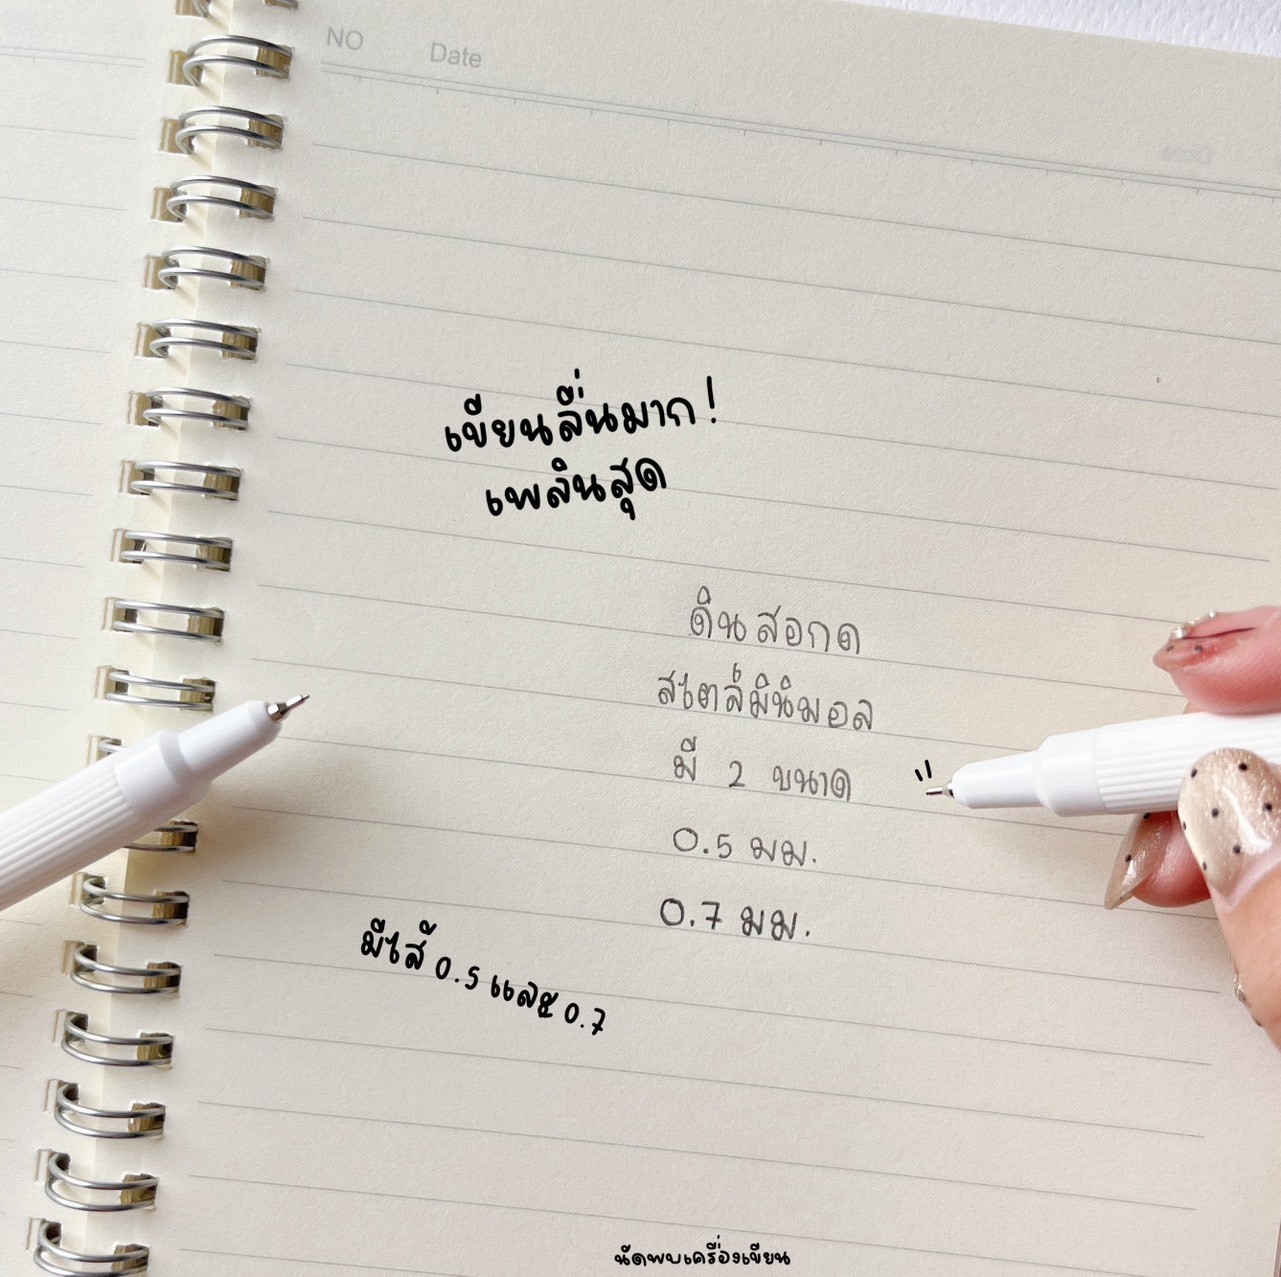 NO Date
เขียนลื่นมาก!
เพลินสุด
ดินสอกด
สไตล์มินิมอล
มี 2 ขนาด
0.5 มม.
0.7 มม.
มีไส้ 0.5 และ 0.7
นัดพบเครื่องเขียน